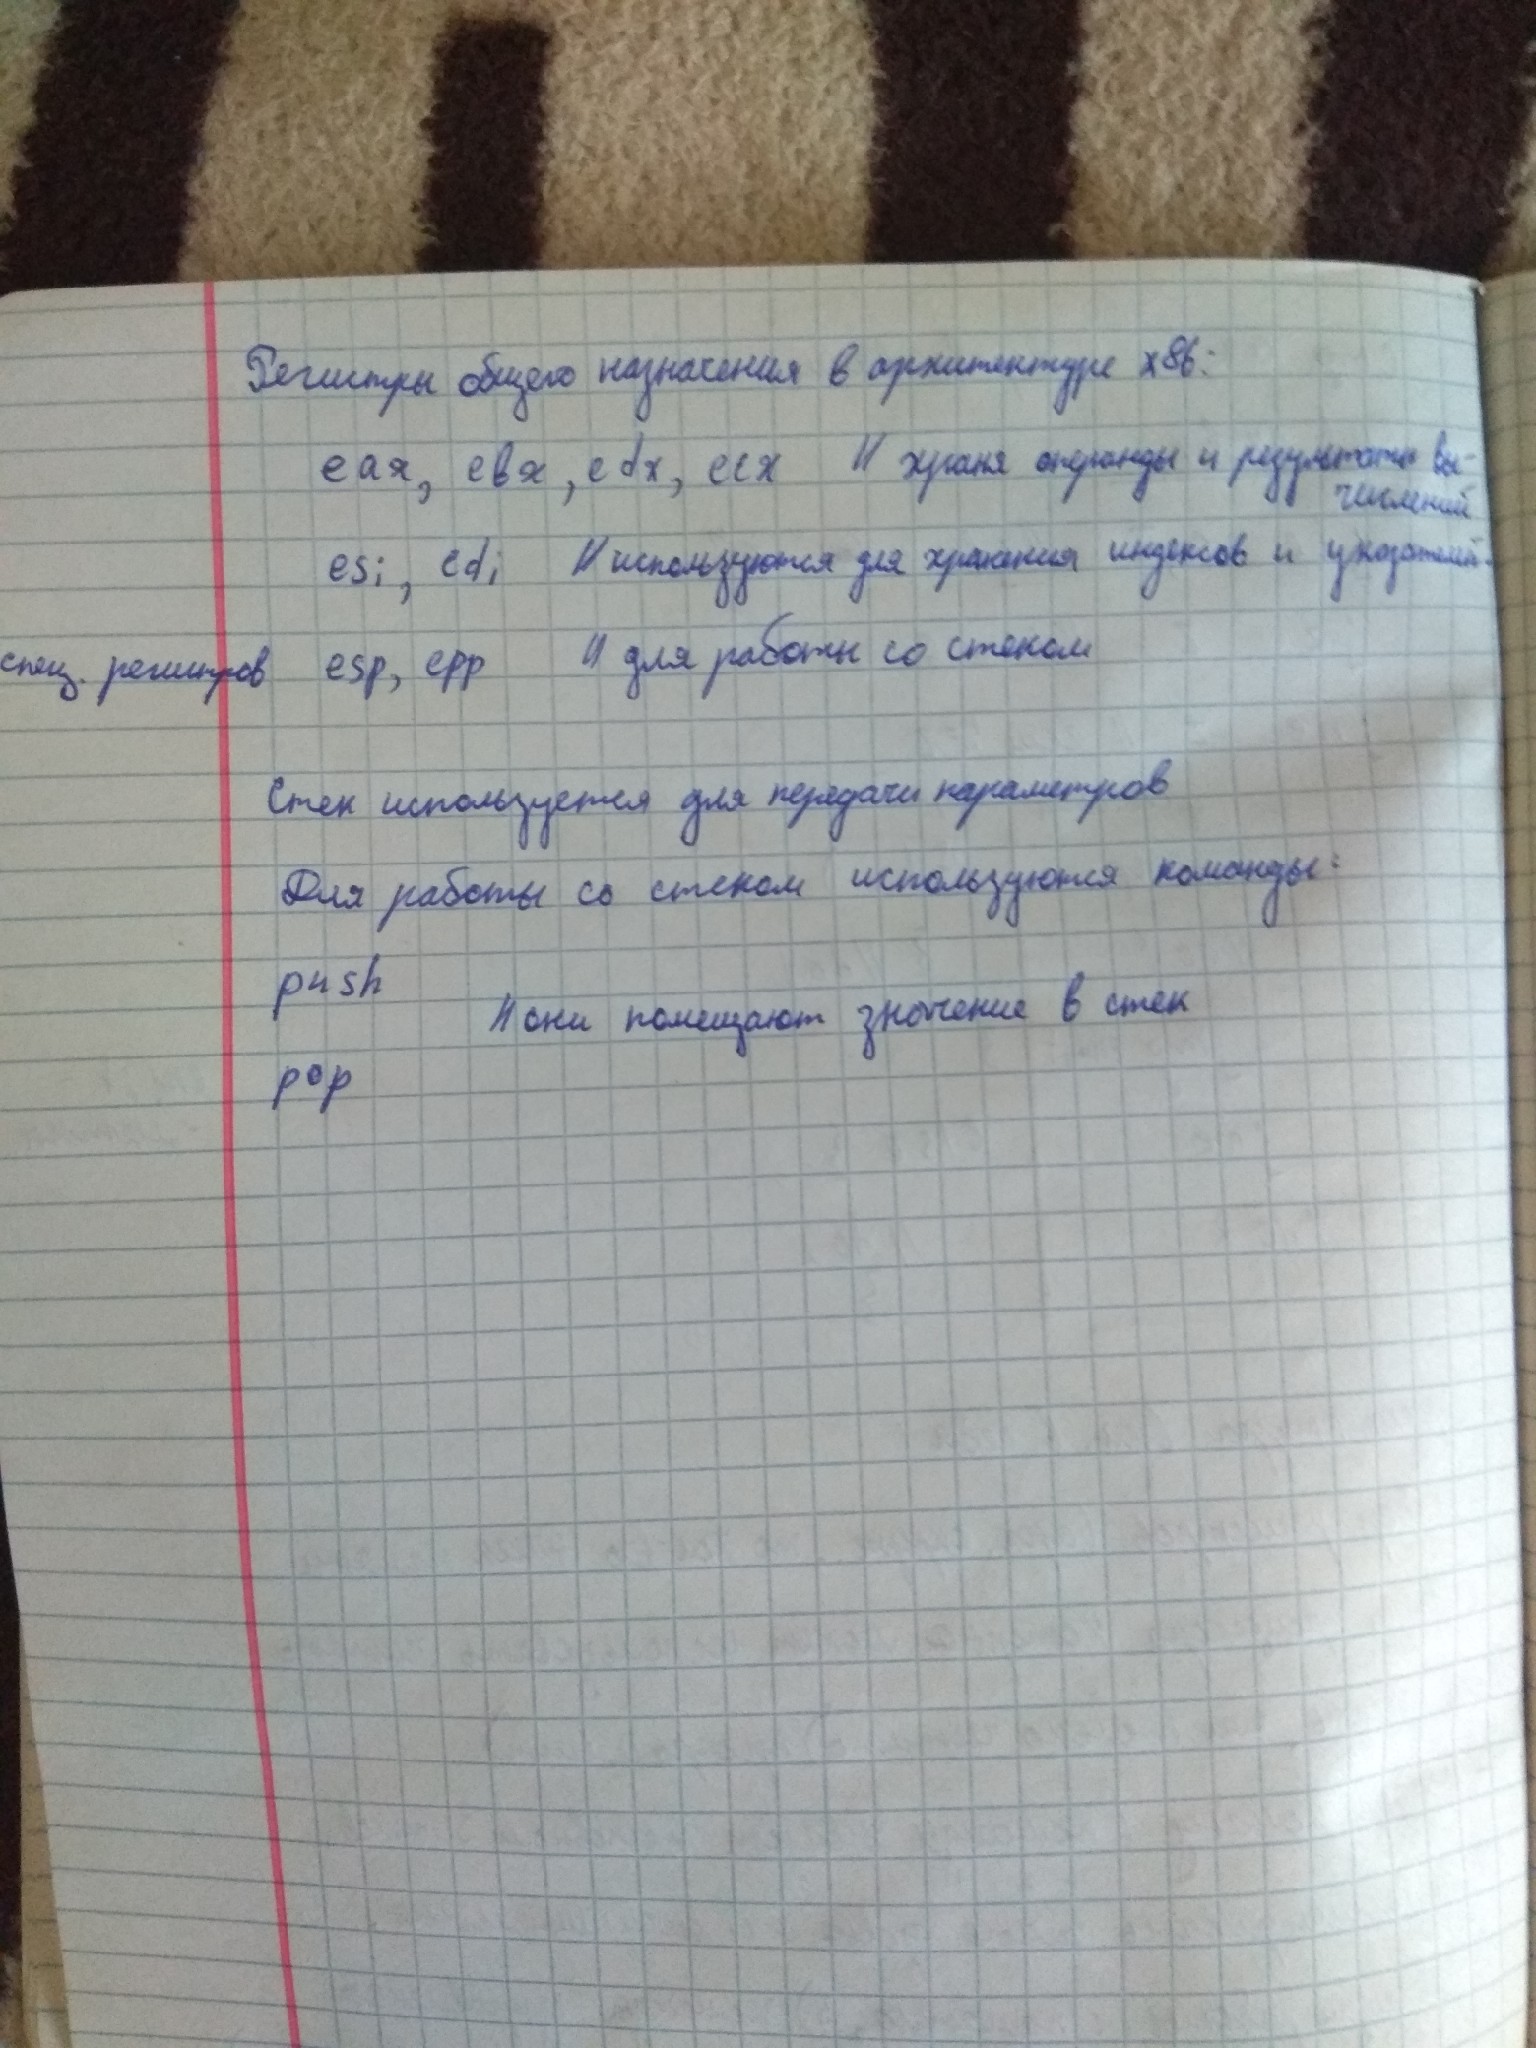 Регистры общего назначения в архитектуре x86:
eax, ebx, edx, ecx // храня операнды и результаты вы-
числений
esi, edi // используются для хранения индексов и указателей.
спец. регистров esp, epp // для работы со стеком
Стек используется для передачи параметров
Для работы со стеком используются команды:
push
// они помещают значение в стек
pop